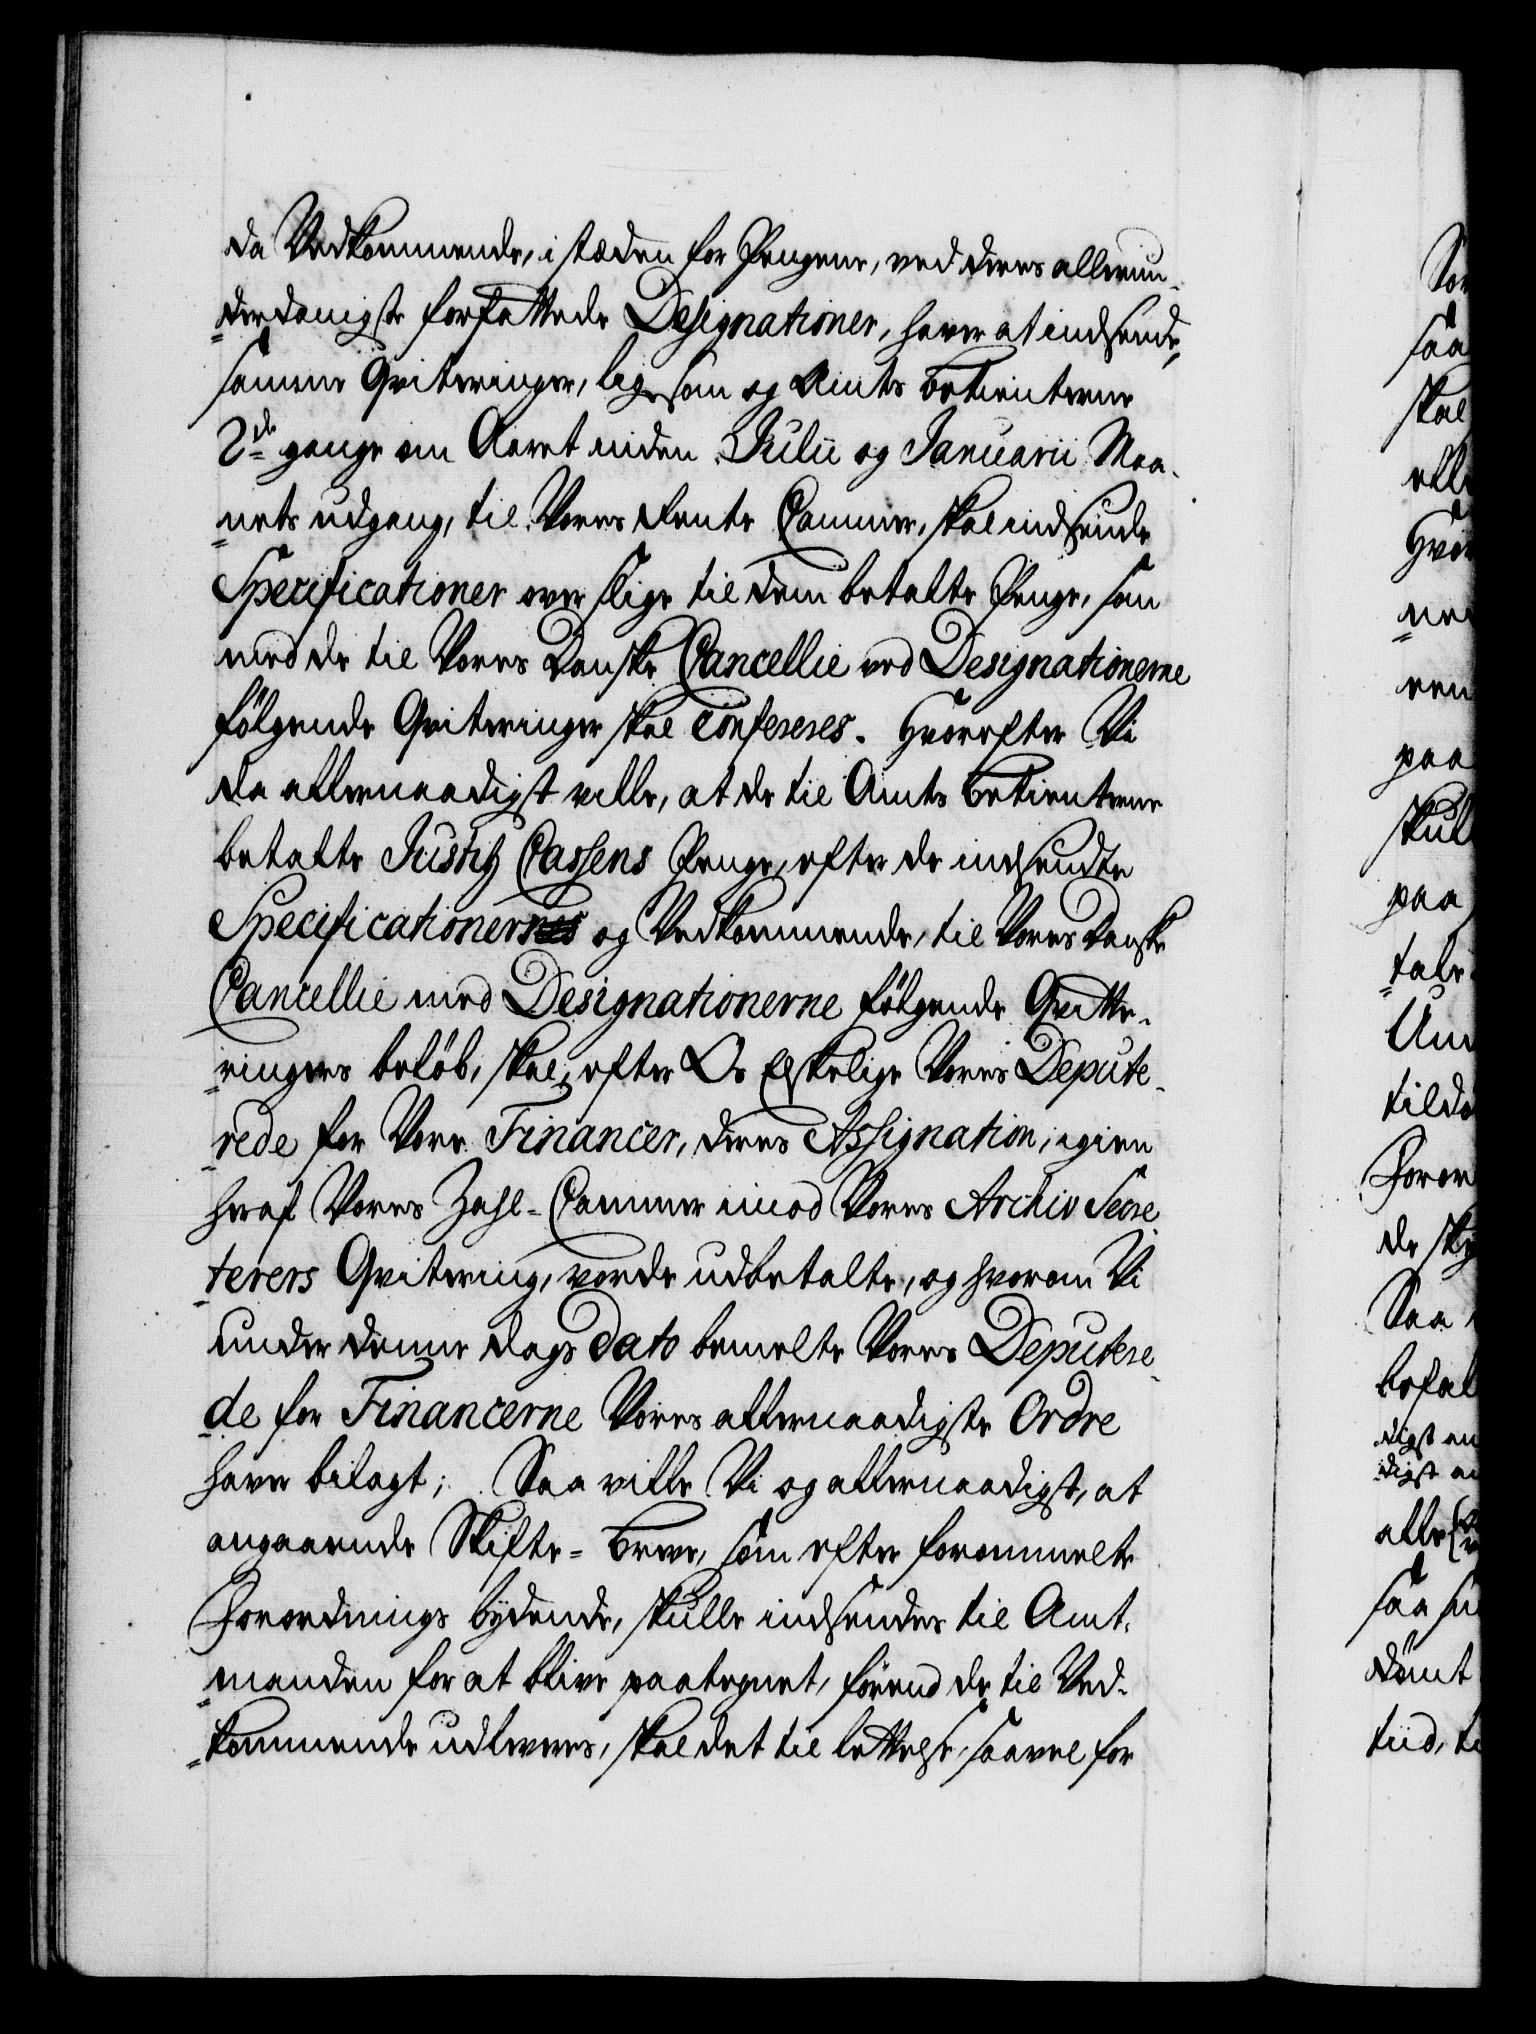 da Vedkommende, i stæden for Pengene, ved deres allerun-
derdanigst forfattede Designationer, haver at indsende,
samme Qvitteringer, ligesom og Amts Betienterne
2de gange om Aaret inden Julii og Januarii Maa-
neds udgang, til Vores Rente Cammer, skal indsende
Specificationer over slige til dem betalte Penge, som
med de til Vores Danske Cancellie ved Designationerne
følgende Qvitteringer skal confereres. Hvorefter Vi
da allernaadigst ville, at de til Amts Betienterne
betalte Justitz Cassens Penge, efter de indsendte
Specificationer og Vedkommende, til Vores Danske
Cancellie med Designationerne følgende Qvitte-
ringers beløb, skal, efter Os Elskelige Vores Depute-
rede for Vore Financer, deres Assignation, igien
heraf Vores Zahl-Cammer imod Vores Archiv Secre
terers Qvittering, vorde udbetalte, og hvorom Vi
under denne Dags Dato bemelte Vores Deputere-
de for Financerne Vores allernaadigste Ordre
haver bilagt; Saa ville Vi og allernaadigst, at
angaaende Skifte-Breve, som efter forommelte
Forordnings bydende, skulle indsendes til Amt-
manden for at blive paategnet, førend de til Ved-
kommende udleveres, skal det til lettelse, saavel for
Saa
skal
paa
paa
Saa
dømt
tiid,